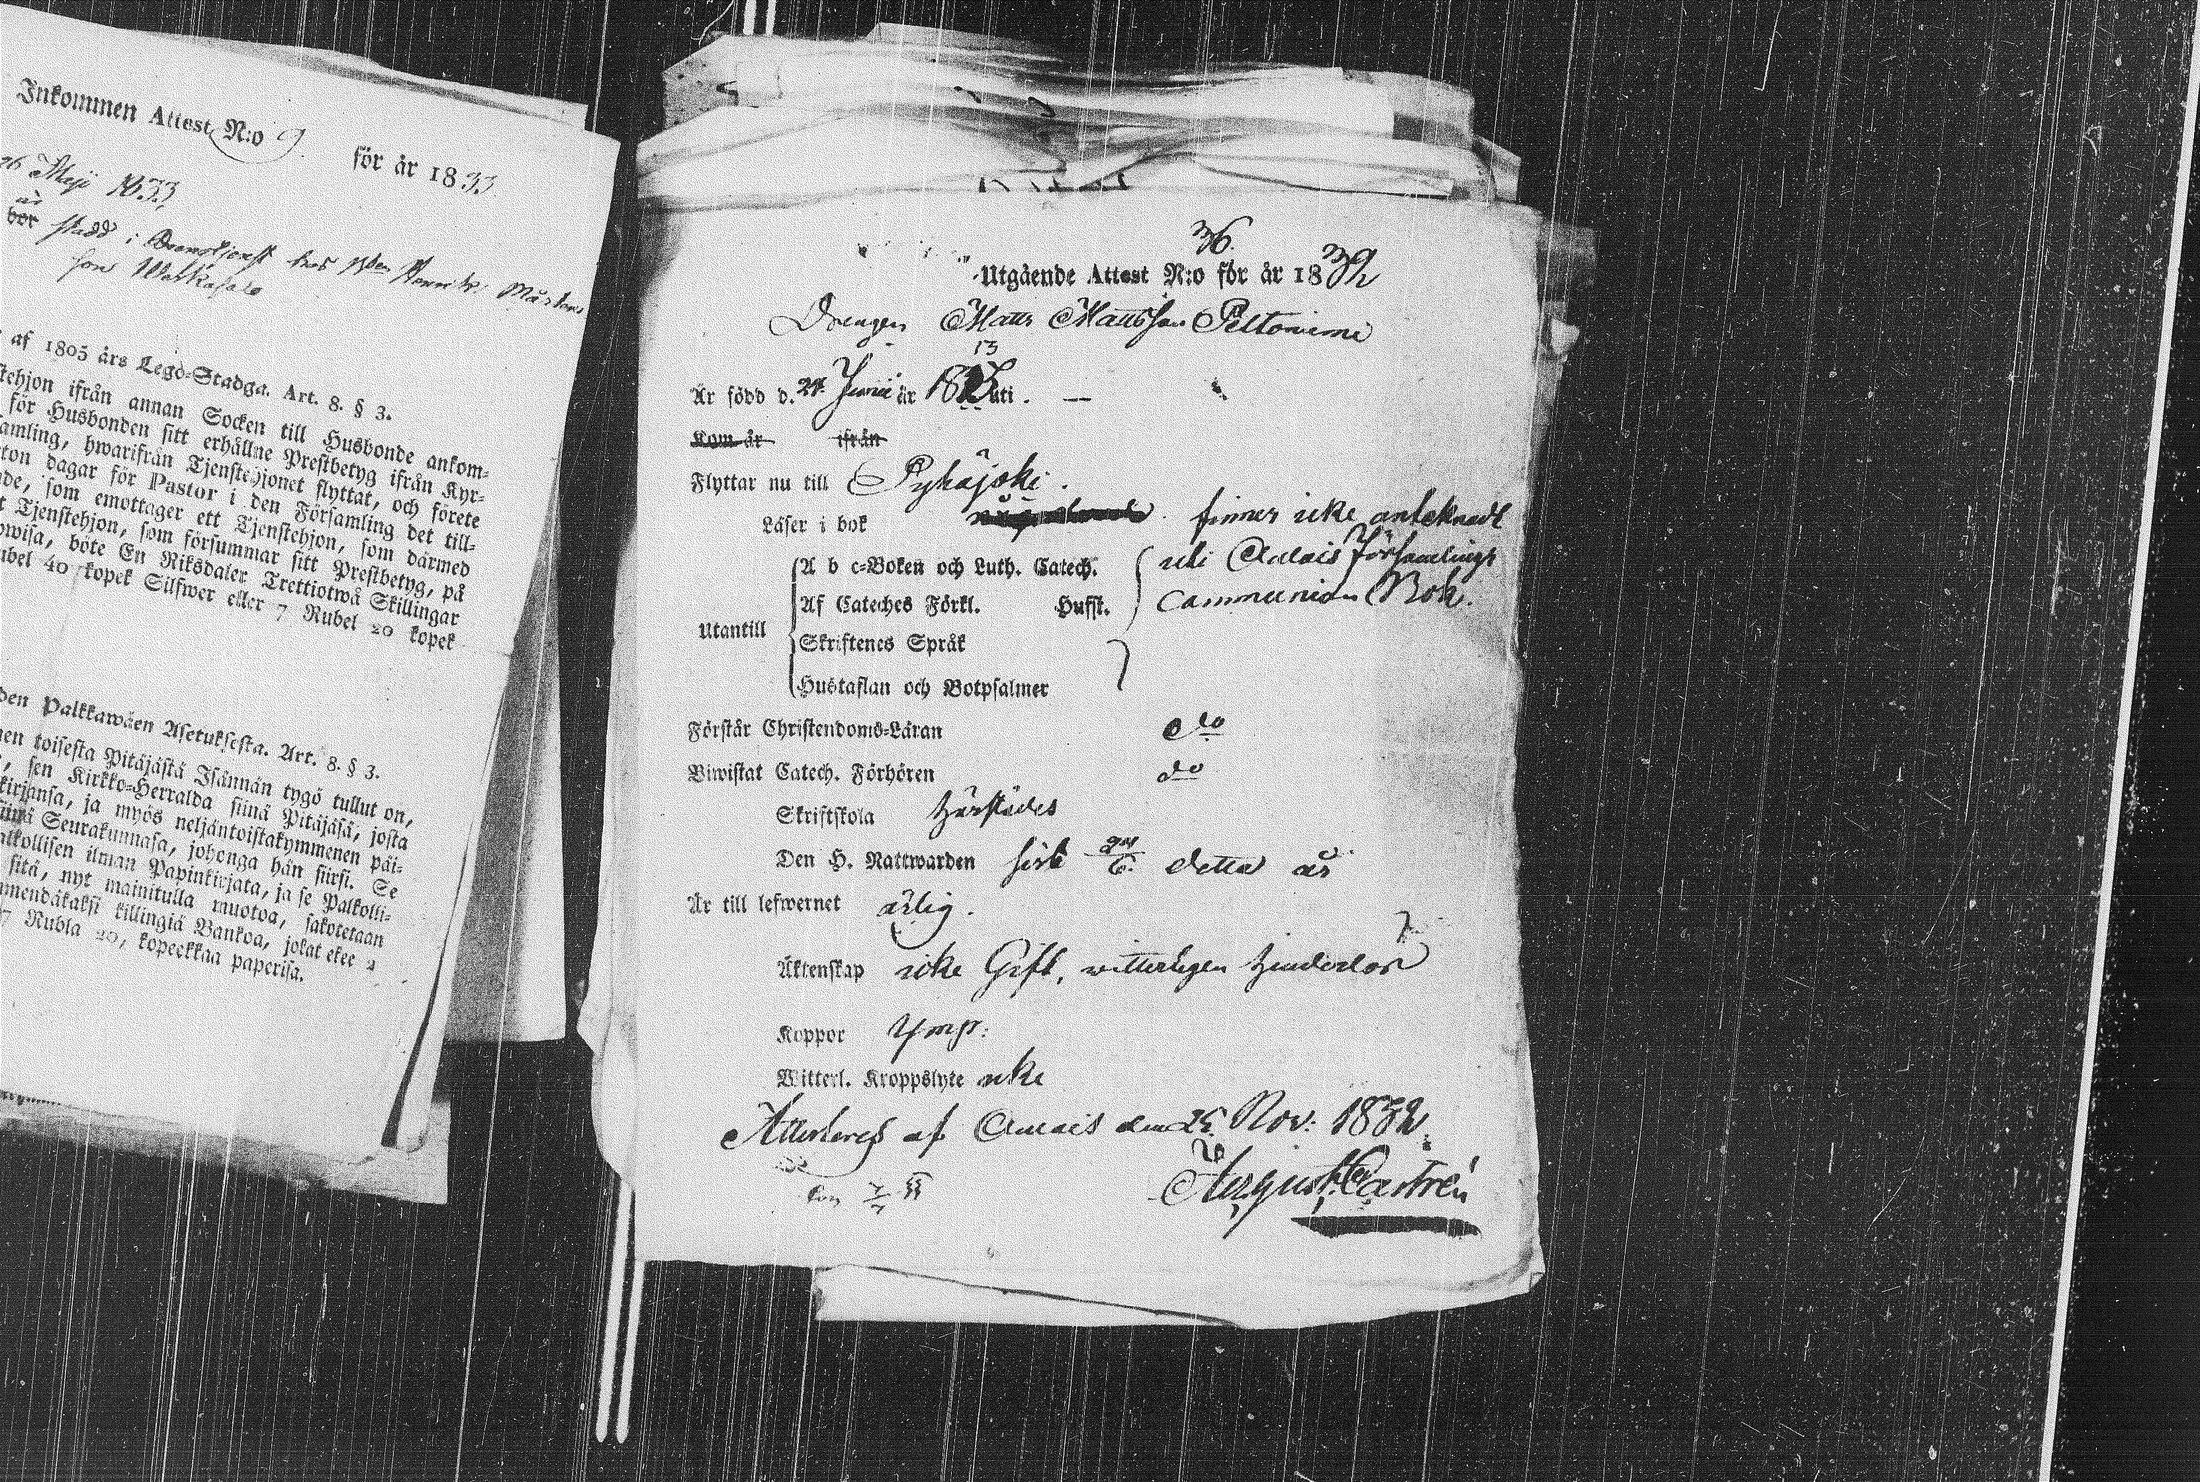 Inkommen Attest N:o 9
för år 1833
26 Maji 1833
är
bör stadd i Drengtjenst hos Henrik Mårtens
son
af 1805 års Lego-Stadga. Art. 8. § 3.
stehjon ifrån annan Socken till Husbonde ankom-
för Husbonden sitt erhållne Prestbetyg ifrån Kyr-
amling, hwarifrån Tjenstehjonet flyttat, och förete
ton dagar för Pastor i den Församling det till-
nde, som emottager ett Tjenstehjon, som därmed
t Tjenstehjon, som försummar sitt Prestbetyg, på
pwisa, böte En Riksdaler Trettiotwå Skillingar
ubel 40 kopek Silfwer eller 7 Rubel 20 kopek
den Palkkawäen Asetuksesta. Art. 8. § 3.
nen toisesta Pitäjästä Isännän tygö tullut on,
, sen Kirkko-Herralda siinä Pitäjäsä, josta
kirjansa, ja myös neljäntoistakymmenen päi-
siinä Seurakunnasa, johonga hän siirsi. Se
alkollisen ilman Papinkirjata, ja se Palkolli-
sitä, nyt mainitulla muotoa, sakotetaan
mmendäkaksi killingiä Bankoa, jokat ekee 2
7 Rubla 20, kopeekkaa paperisa.
36.
Utgående Attest N:o för år 1832
Drengen Matts Mattsson Peltoniemi
13
Är född d. 24 Junii år 18 uti. —
Kom år ifrån
Flyttar nu till Pyhäjoki.
Läser i bok finnes icke anteknadt
A b c-Boken och Luth. Catech. uti Calais Församlings
Af Cateches Förkl. Husst. Communion Bok.
Utantill
Skriftenes Språk
Hustaflan och Botpsalmer
Förstår Christendoms-Läran do
Biwistat Catech. Förhören do
Skriftskola härstädes
Den H. Nattwarden sist 24/6. detta år
Är till lefwernet ärlig.
Äktenskap icke Gift, witterligen hinderlös
Koppor Ymp:
Witterl. Kroppslyte icke
Attesteras af Calais den 25 Nov: 1832.
August Castrén